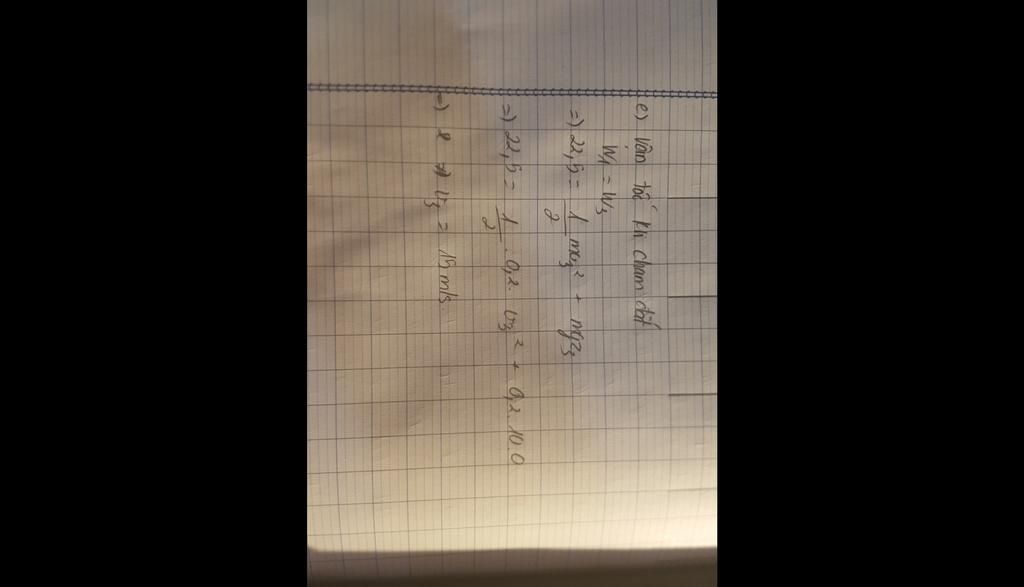 e) Vận tốc khi chạm đất
W₁ = W₃
=) 22,5 = 1/2 mv₃² + mgz₃
=) 22,5 = 1/2 . 0,2 . v₃² + 0,2 . 10 . 0
=) v₃ = 15 m/s.